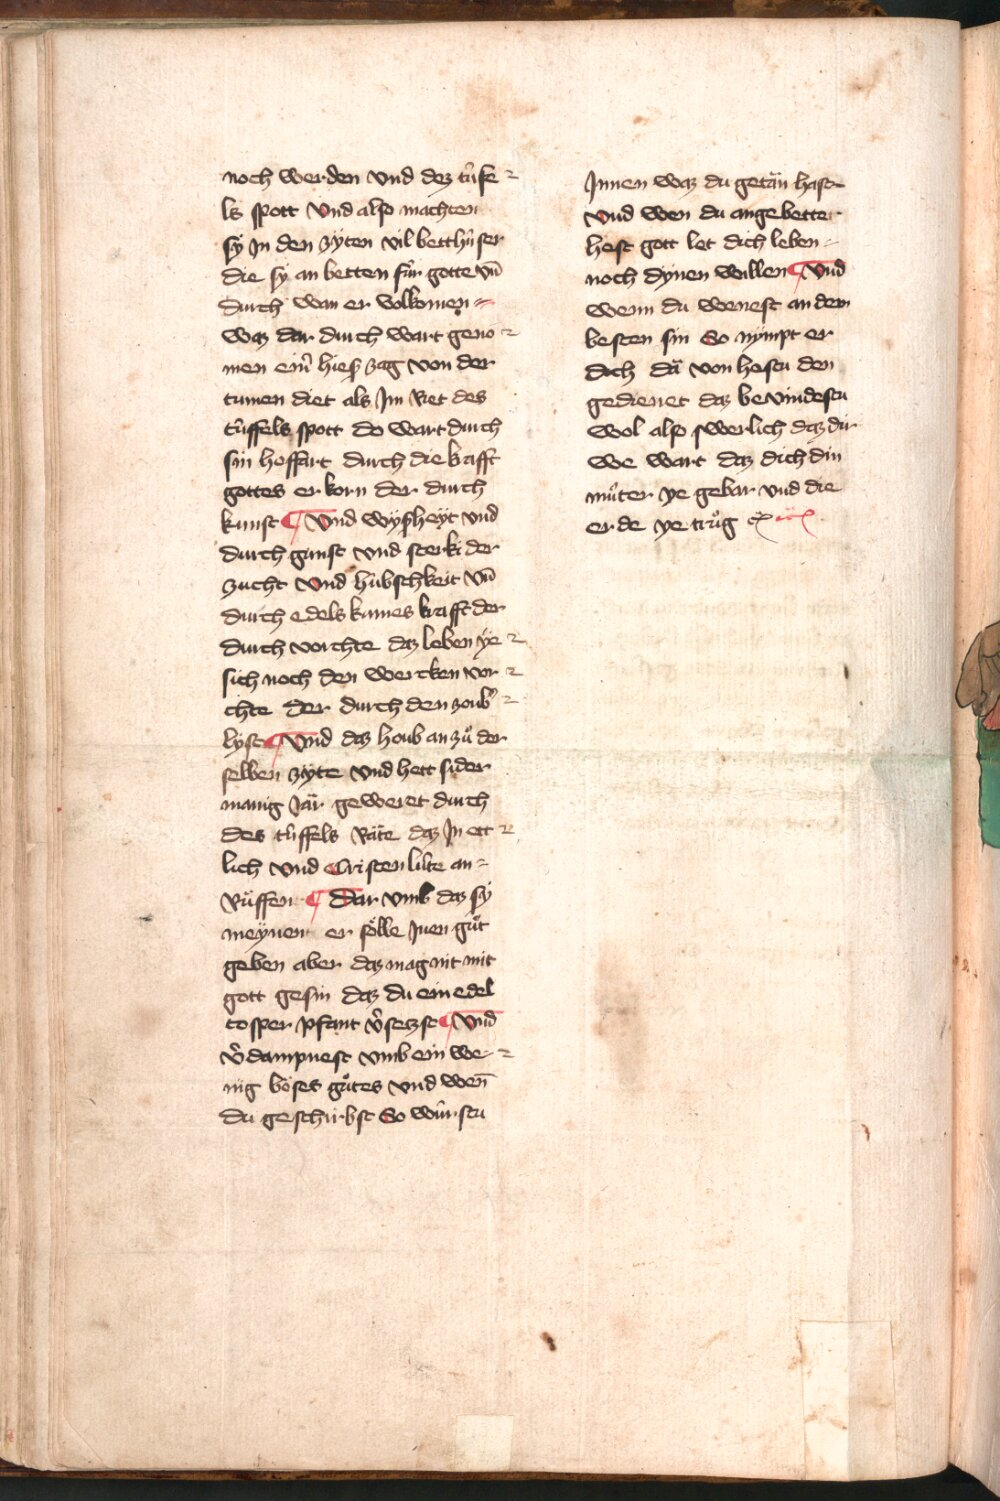 noch werden vnd dez túfe
ls spott Vnd also machten
sÿ Jn den zÿten vil betthúser
die sÿ an betten fúr gotte vn̄
durch wan er volkomen
waz dar durch wart geno
men ein̄ hiesz sag von der
tumen diet als Jm Riet des
túffels spott do wart durch
sin hoffart durch die krafft
gottes er korn der durch
kunst ¶ Vnd wÿsheÿt vnd
durch gunst vnd sterki der
zucht Vnd húbschkeit vn̄
durch edels kumes krafft der
durch vorchte daz leben ÿe
sich noch den wercken vor
chte der durch den zoub
lÿst ¶ Vnd daz houb an zů der
selben zÿte vnd hett sider
manig Jär geweret durch
des túffels Räte daz Jn ett
lich vnd Cristen lúte an
Rüffen ¶ Dar vmb daz sÿ
meÿnen er sölle Jnen gůt
geben aber daz mag nit mit
gott gesin daz du ein edel
cosper pfant v̄setzst ¶ Vnd
v̄dampnest vmb ein we
nig böses gůtes vnd wen̄
du geschirbst So würstu
Jnnen waz du getän hast
Vnd wen du angebettet
hest gott let dich leben
noch dÿnen willen ¶ Vnd
wenn du wenest an dem
besten sin So nÿmpt er
dich dä von hestu den
gedienet daz bevindestu
wol also swerlich daz dir
we wart daz dich din
můter ye gebar vnd die
erde ye trůg